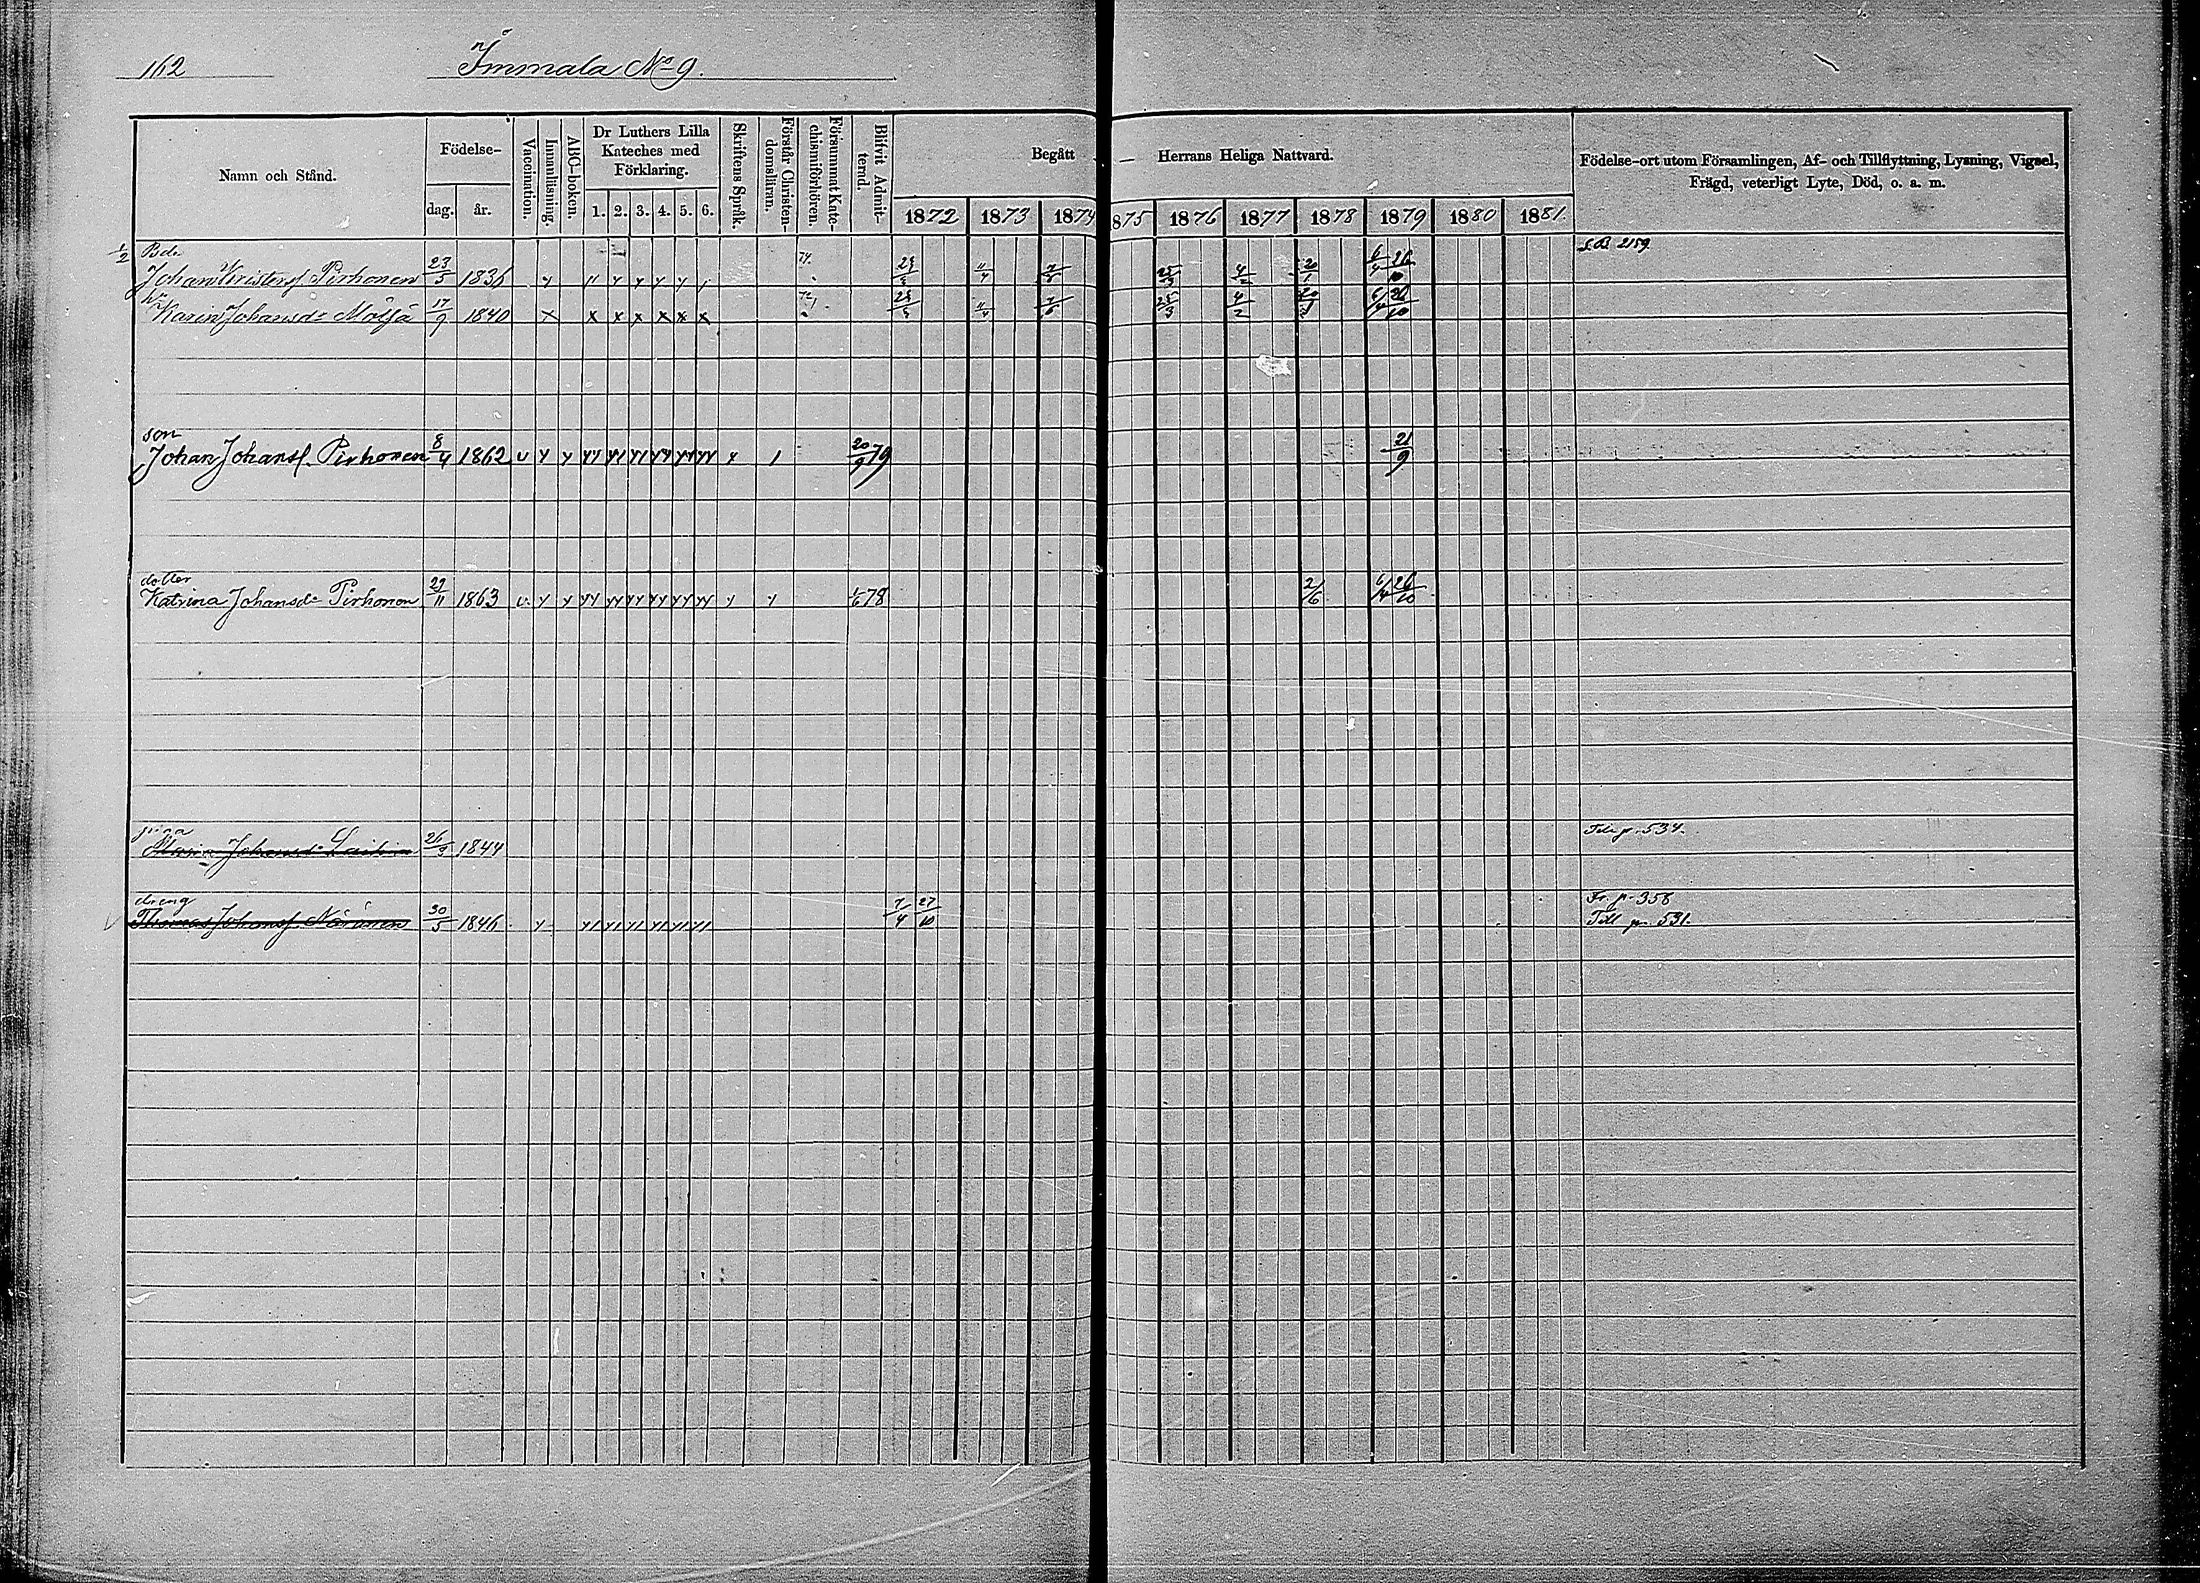 162
Immala No 9.
Namn och Stånd.
Födelse-
dag.
år.
Vaccination.
Innanläsning.
ABC-boken.
Dr Luthers Lilla
Kateches med
Förklaring.
1. 2. 3. 4. 5. 6.
Skriftens Språk.
Förstår Christen-
domsläran.
Försummat Kate-
chismiförhören.
Blifvit Admit-
terad.
Begått — Herrans Heliga Nattvard.
1872 1873 1874 1875 1876 1877 1878 1879 1880 1881
Födelse-ort utom Församlingen, Af- och Tillflyttning, Lysning, Vigsel,
Frägd, veterligt Lyte, Död, o. a. m.
1/2 Bde S.B. 2159.
Johan Kristersf Pirhonen 23/5 1836 11/4 4/2 20/1 6/4 26/10
hu
Karin Johansdr 17/9 1840 x x x x x x x 11/4 25/3 4/2 6/4 26/10
son
Johan Johansf. Pirhonen 8/4 1862 v y y y1 y1 y1 yy yy yy y 1 20/9 79 21/9
dotter
Katrina Johansdr Pirhonen 29/11 1863 v y y yy yy yy yy yy yy y y 1/6 78 2/6 6/4 26/10
Maria Johansdr 26/9 1844 p. 534.
dreng Fr. p. 358
Thomas Johansf 30/5 1846 y y1 y1 y1 y1 y1 y1 7/4 27/10 Till p. 531.